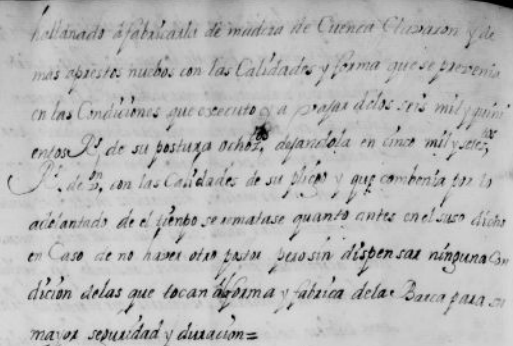 hallanado á fabricarla de madera de Cuenca Clavazon y de
mas aprestos nuebos con las Calidades y forma que se prevenia
en las Condiciones que executo y a bajar delos seis mil y quini
entos R.s de su postura ochoz.tos dejandola en cinco mil y setez.tos
R.s de v.on con las Calidades de su pliego y que combenia por lo
adelantado de el tienpo se rematase quanto antes en el suso dicho
en Caso de no haver otro postor pero sin dispensar ninguna Con
dicion delas que tocan álaforma y fabrica dela Barca para su
mayor seguridad y duracion=